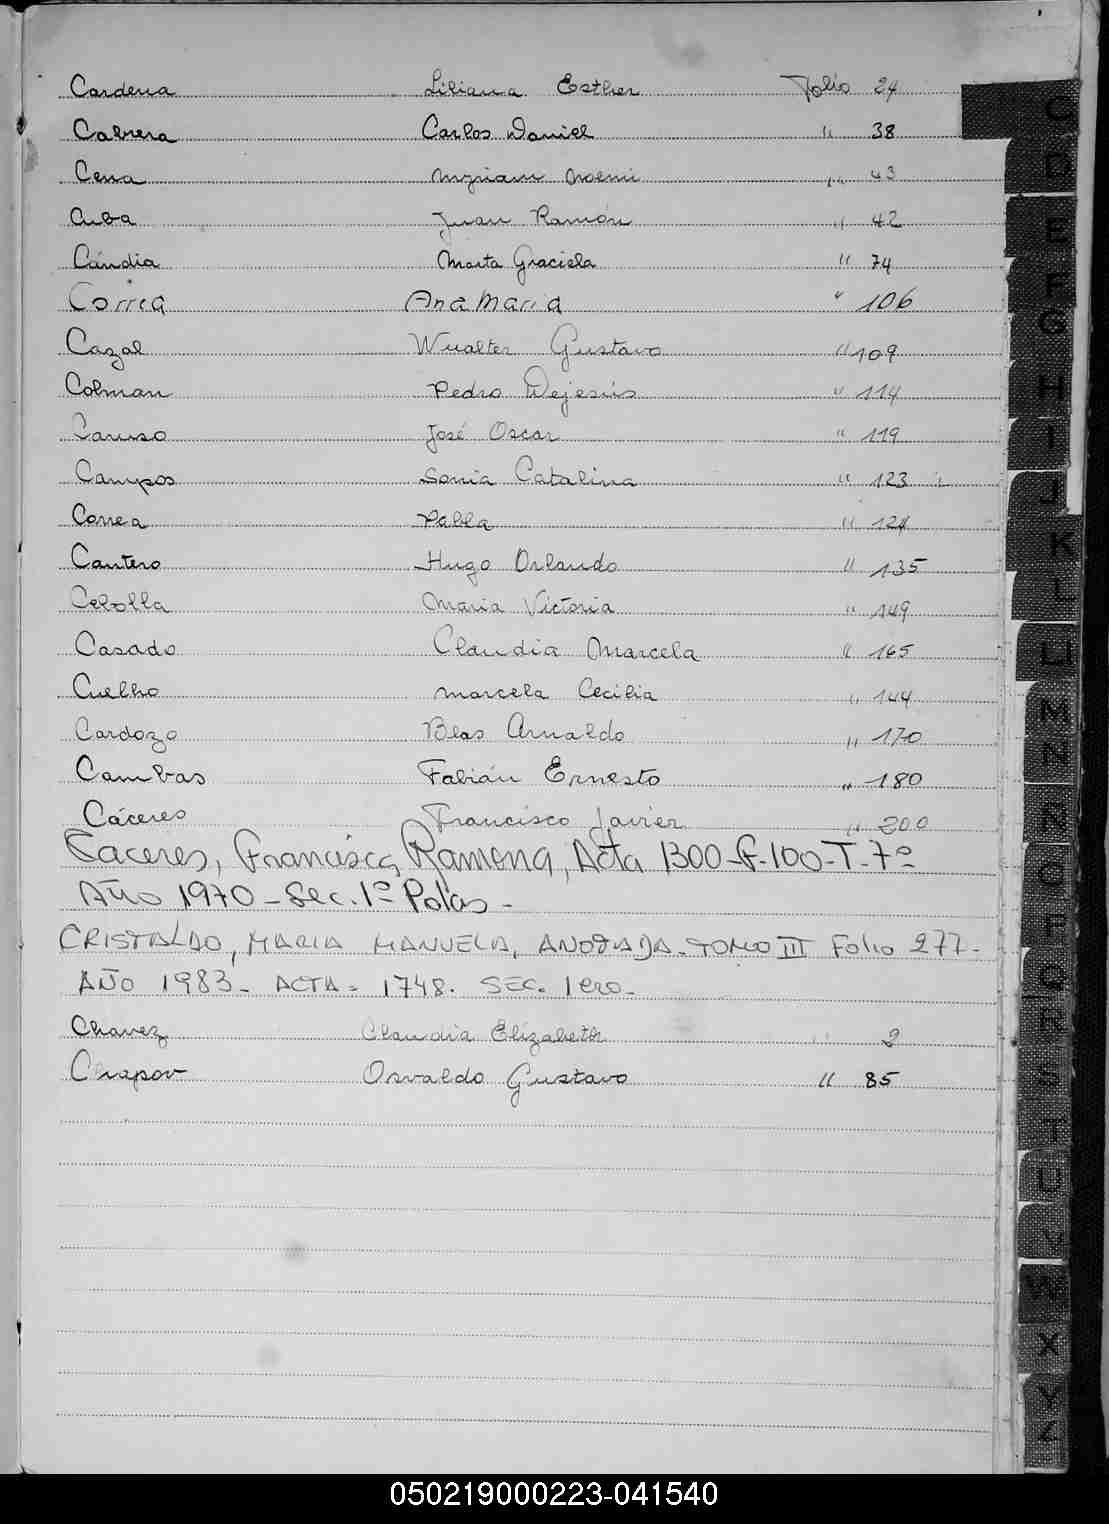 Cardena Liliana Esther Folio 24
Cabrera Carlos Daniel " 38
Cena Myriam Noemi " 43
Cuba Juan Ramón " 42
Cándia Marta Graciela " 74
Correa Ana Maria " 106
Cazal Wualter Gustavo " 109
Colman Pedro Dejesús " 114
Caruso José Oscar " 119
Campos Sonia Catalina " 123
Correa Pabla " 124
Cantero Hugo Orlando " 135
Cebolla Maria Victoria " 149
Casado Claudia Marcela " 165
Cuelho Marcela Cecilia " 144
Cardozo Blas Arnaldo " 170
Cambas Fabián Ernesto " 180
Cáceres Francisco Javier " 200
Caceres, Francisca Ramona, Acta 1300-F-100-T-7º
Año 1970 - Sec. 1º Pdas -
CRISTALDO, MARIA MANUELA, ANOTADA - TOMO III Folio 277-
AÑO 1983 - ACTA - 1748. SEC. 1ERO-
Chavez Claudia Elizabeth " 2
Chapov Osvaldo Gustavo " 85
C
D
E
F
G
H
I
J
K
L
LL
M
N
Ñ
O
P
Q
R
S
T
U
V
W
X
Y
Z
050219000223-041540